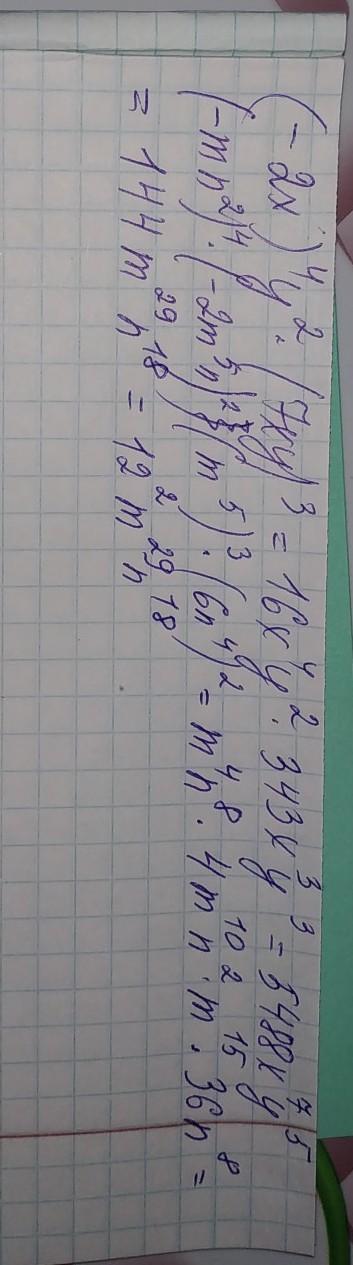 (-2x)⁴y²·(7xy)³ = 16x⁴y²·343x³y³ = 5488x⁷y⁵
(-mn²)⁴·(-2m⁵n)²·(m⁵)³·(6n⁴)² = m⁴n⁸·4m¹⁰n²·m¹⁵·36n⁸ =
= 144m²⁹n¹⁸ = 12²m²⁹n¹⁸